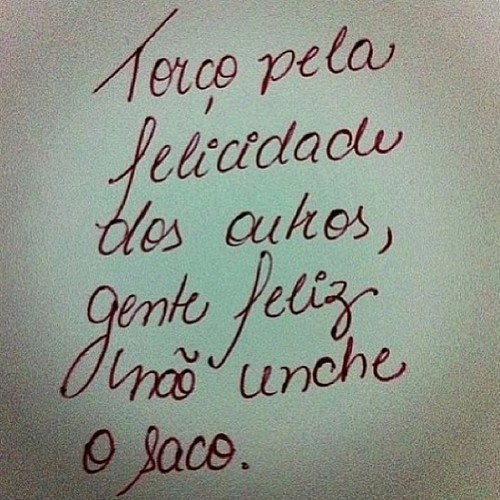 Torço pela
felicidade
dos outros,
gente feliz
não enche
o saco.